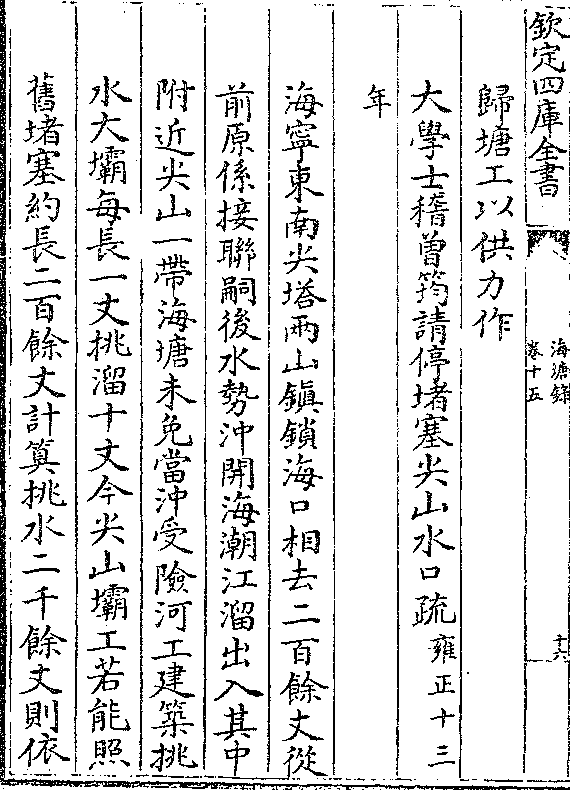 欽定四庫全書
海塘錄
卷十五
十六
歸塘工以供力作
大學士稽曾筠請停堵塞尖山水口疏雍正十三
年
海寧東南尖塔兩山鎭鎖海口相去二百餘丈從
前原係接聯嗣後水勢沖開海潮江溜出入其中
附近尖山一帶海塘未免當沖受險河工建築挑
水大壩每長一丈挑溜十丈今尖山壩工若能照
舊堵塞約長二百餘丈計算挑水二千餘丈則依